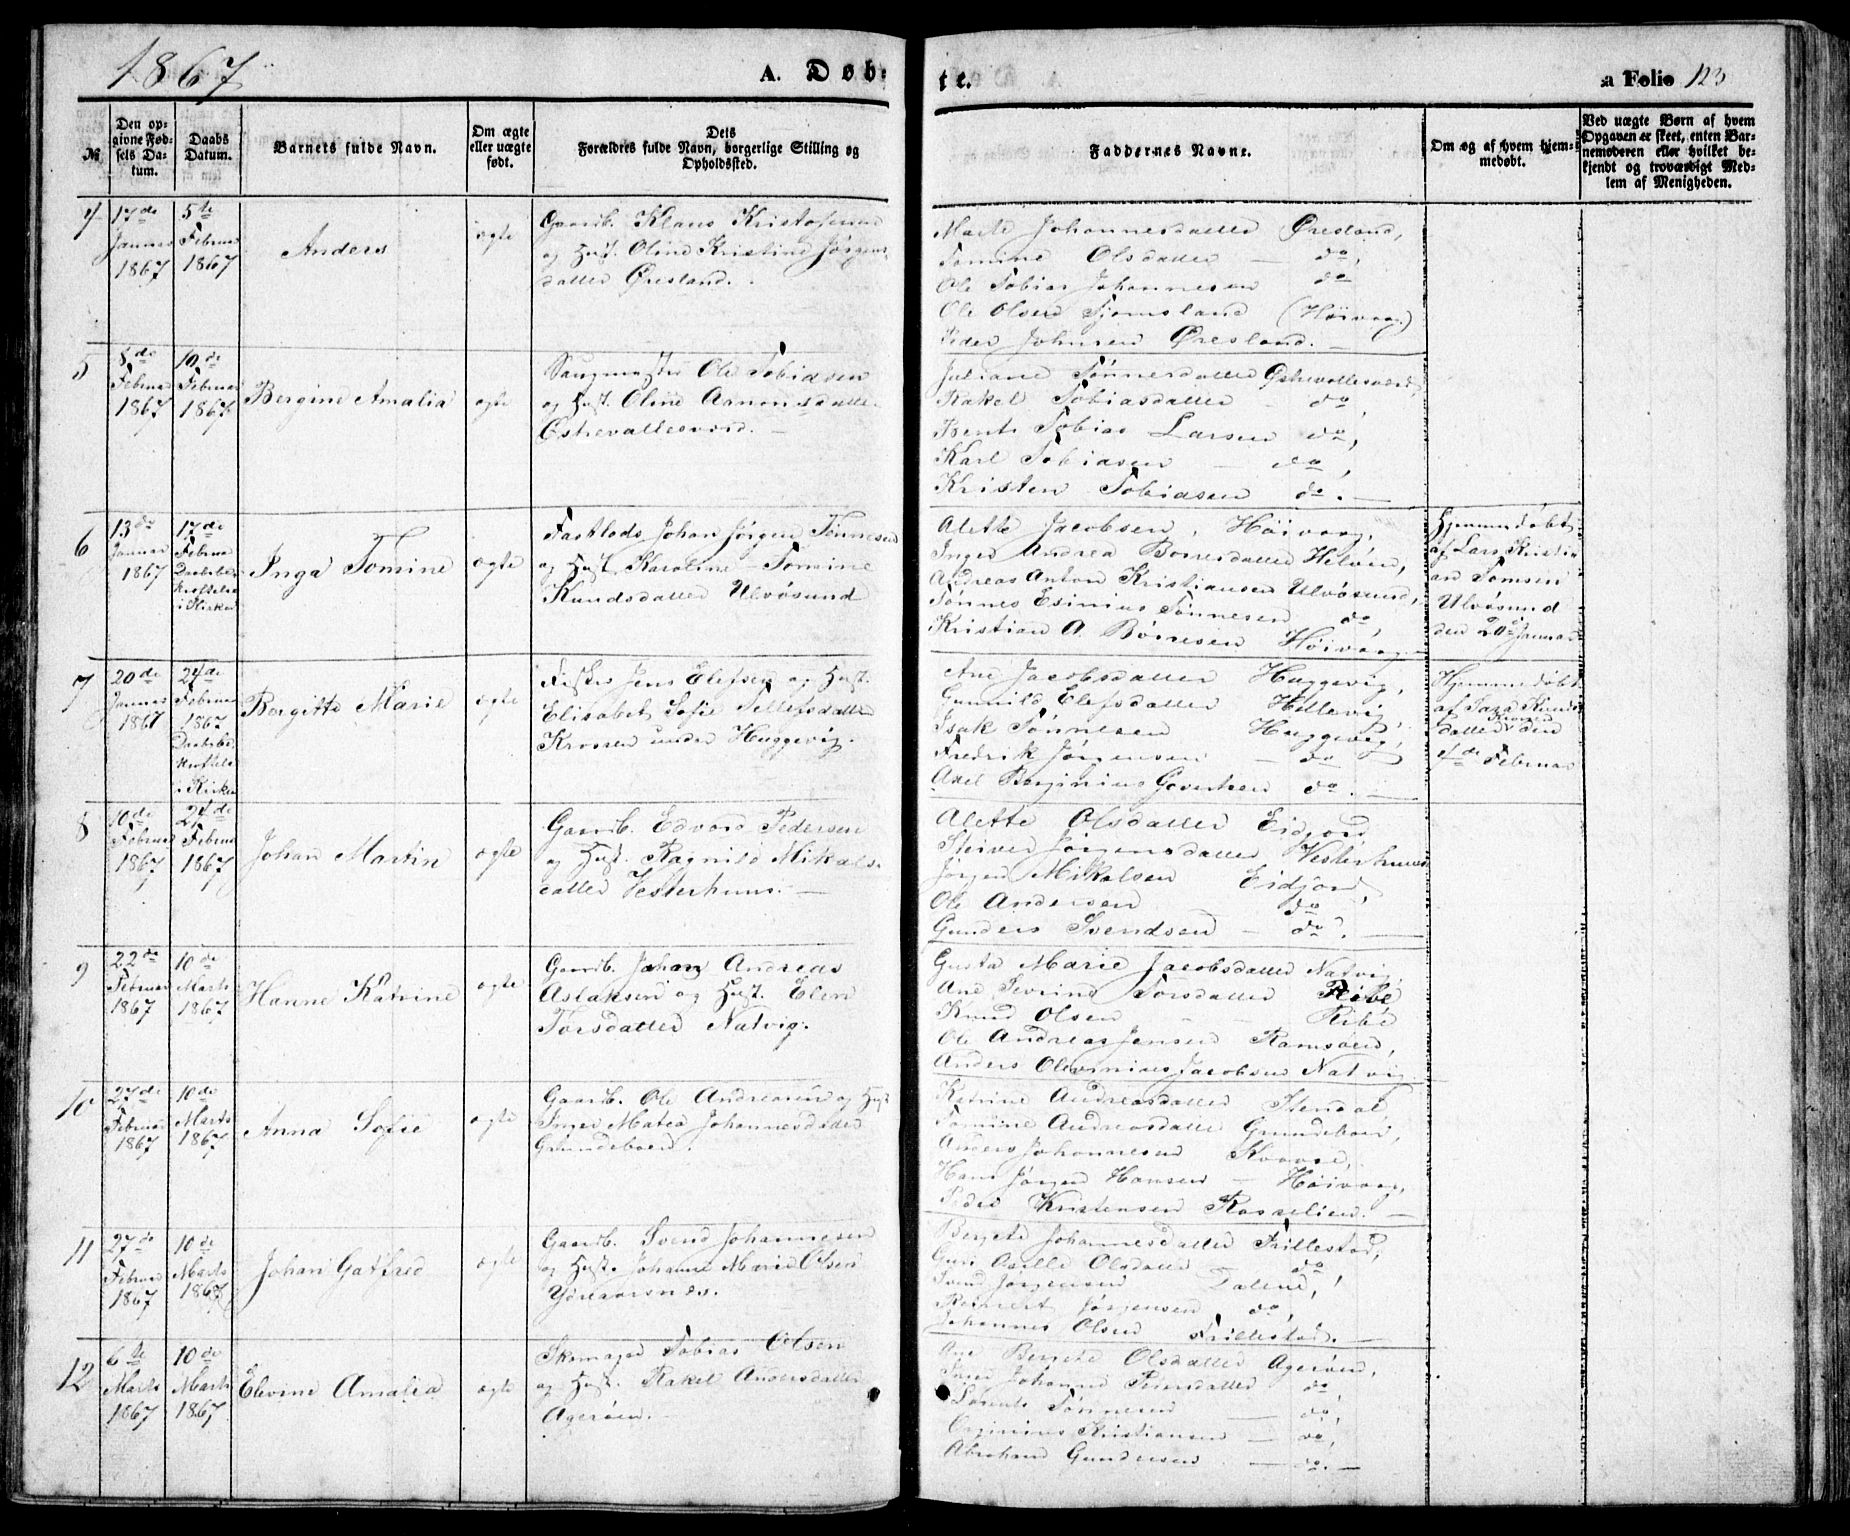 1867
A. Døb-
te.
a Folio 123
№
Den op-
givne Fød-
sels Da-
tum.
Daabs
Datum.
Barnets fulde Navn.
Om ægte
eller uægte
født.
Dets
Forældres fulde Navn, borgerlige Stilling og
Opholdssted.
Faddernes Navne.
Om og af hvem hjem-
medøbt.
Ved uægte Børn af hvem
Opgaven er skeet, enten Bar-
nemoderen eller hvilket be-
kjendt og troværdigt Med-
lem af Menigheden.
4
17de
Januar
1867
5te
Februar
1867
Anders
ægte
Gaardb. Klaus Kristofersen
og Hust. Oline Kristine Jørgens-
datter Øresland.
Marte Johannesdatter Øresland,
Tomine Olsdatter — do,
Ole Tobias Johannesen do
Ole Olsen Tjomsland (Høivaag)
Peder Johnsen Øresland. —
5
8de
Februar
1867
10de
Februar
1867
Bergine Amalia
ægte
Ole Tobiasen
og Hust. Oline Aanonsdatter
Østrevallesværd. —
Juliane Tønnesdatter Østrevallesværd,
Rakel Tobiasdatter - do,
Bent Tobias Larsen do,
Karl Tobiasen — do,
Kristen Tobiasen do. —
6
13de
Januar
1867
17de
Februar
Daabsbe-
kræftelse
i Kirken
Inga Tomine
ægte
Johan Jørgen Tønnesen
og Hust. Karoline Tomine
Knudsdatter Ulvøsund
Alette Jacobsen, Høivaag,
Inger Andrea Børresdatter Helvøen,
Andreas Anton Kristiansen Ulvøsund,
Tønnes Esinius Tønnesen do,
Kristian A. Børresen Høivaag.
Hjemmedøbt
af Lars Kristi-
an Tomsen
Ulvøsund
den 20de Januar
7
20de
Januar
1867
24de
Februar
1867
Daabsbe-
kræftelse
i Kirken
Bergitte Marie
ægte
Fisker Jens Elefsen og Hust.
Elisabet Sofie Tellefsdatter
Krossen under Huggevig.
Ane Jacobsdatter Huggevig,
Gunnild Elefsdatter Hellevig,
Isak Tønnesen Huggevig,
Fredrik Jørgensen — do
Axel Berginius do. —
Hjemmedøbt
af Knuds-
datter Krossen den
4de Februar
8
10de
Februar
1867
24de
Februar
1867
Johan Martin
ægte
Gaardb. Edvard Pedersen
og Hust. Ragnild Mikals-
datter Vesterhuus. —
Alette Olsdatter Eidjord
Jørgensdatter Vesterhuus
Jørgen Mikalsen Eidjord,
Ole Andersen do
Gunders Svendsen — do. —
9
22de
Februar
1867
10de
Marts
1867
Hanne Katrine
ægte
Gaardb. Johan Andreas
Aslaksen og Hust. Elen
Torsdatter Natvig.
Gusta Marie Jacobsdatter Natvig,
Ane Sevrine Torsdatter Ribe
Knud Olsen - - Ribe
Ole Andreas Jensen Ramsøen,
Anders Olevinius Jacobsen Natvig.
10
27de
Februar
1867
10de
Marts
1867
Anna Sofie
ægte
Gaardb. Ole Andreasen og Hust
Inger Matea Johannesdatter
Grundeboen.
Katrine Andreasdatter Stendal,
Tomine Andreasdatter Grundeboen,
Anders Johannesen
Hans Jørgen Hansen — Høivaag,
Peder Kristensen Rosselien. —
11
27de
Februar
1867
10de
Marts
1867
Johan Gatfred
ægte
Gaardb. Svend Johannesen
og Hust. Johanne Marie Olsen
Ydreaarsnes.
Bergete Johannesdatter Trillestad,
Guri Olsdatter do
Svend Jørgensen
Reinert Jørgensen do,
Johannes Olsen Trillestad. —
12
6te
Marts
1867
10de
Marts
1867
Elevine Amalia
ægte
Skomager Tobias Olsen
og Hust. Rakel Andersdatter
Agerøen. —
Ane Bergete Olsdatter Agerøen,
Inger Johanne Pedersdatter do,
Tønnesen — do,
Kristiansen — do,
Abraham Gundersen — do. —